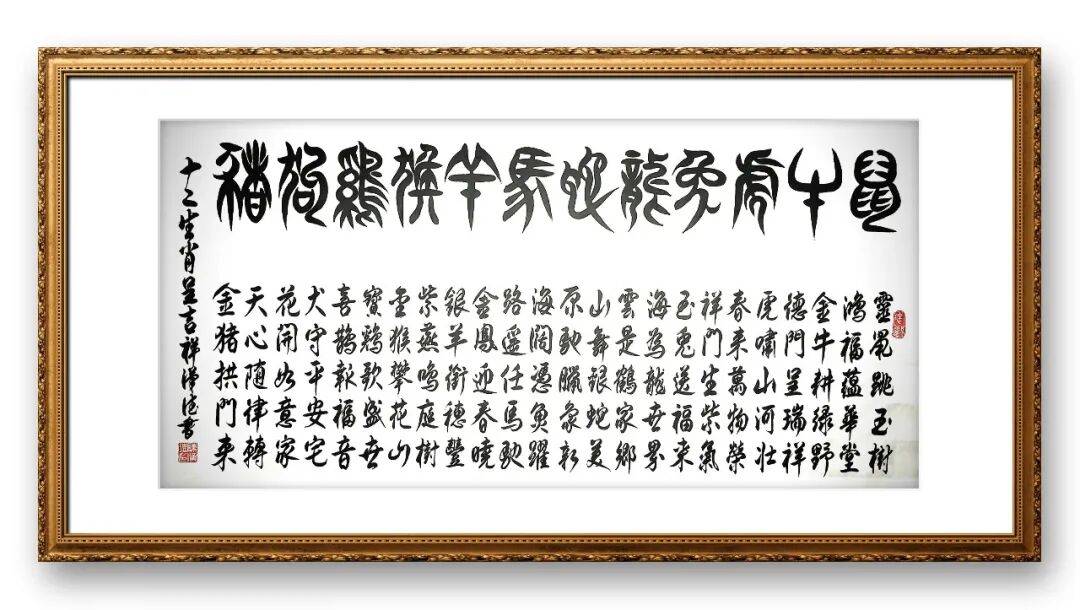 鼠牛虎兔龍蛇馬羊猴鷄狗豬
靈鼠跳玉樹
鴻福蘊華堂
金牛耕綠野
德門呈瑞祥
虎嘯山河壯
春來萬物榮
祥門生紫氣
玉兔送福來
海為龍世界
雲是鶴家鄉
山舞銀蛇美
原馳臘象新
海闊憑魚躍
路遙任馬馳
金鳳迎春曉
銀羊銜穗豐
紫燕鳴庭樹
金猴攀花山
寶鷄歌盛世
喜鵲報福音
犬守平安宅
花開如意家
天心随律轉
金猪拱門來
十二生肖呈吉祥 書